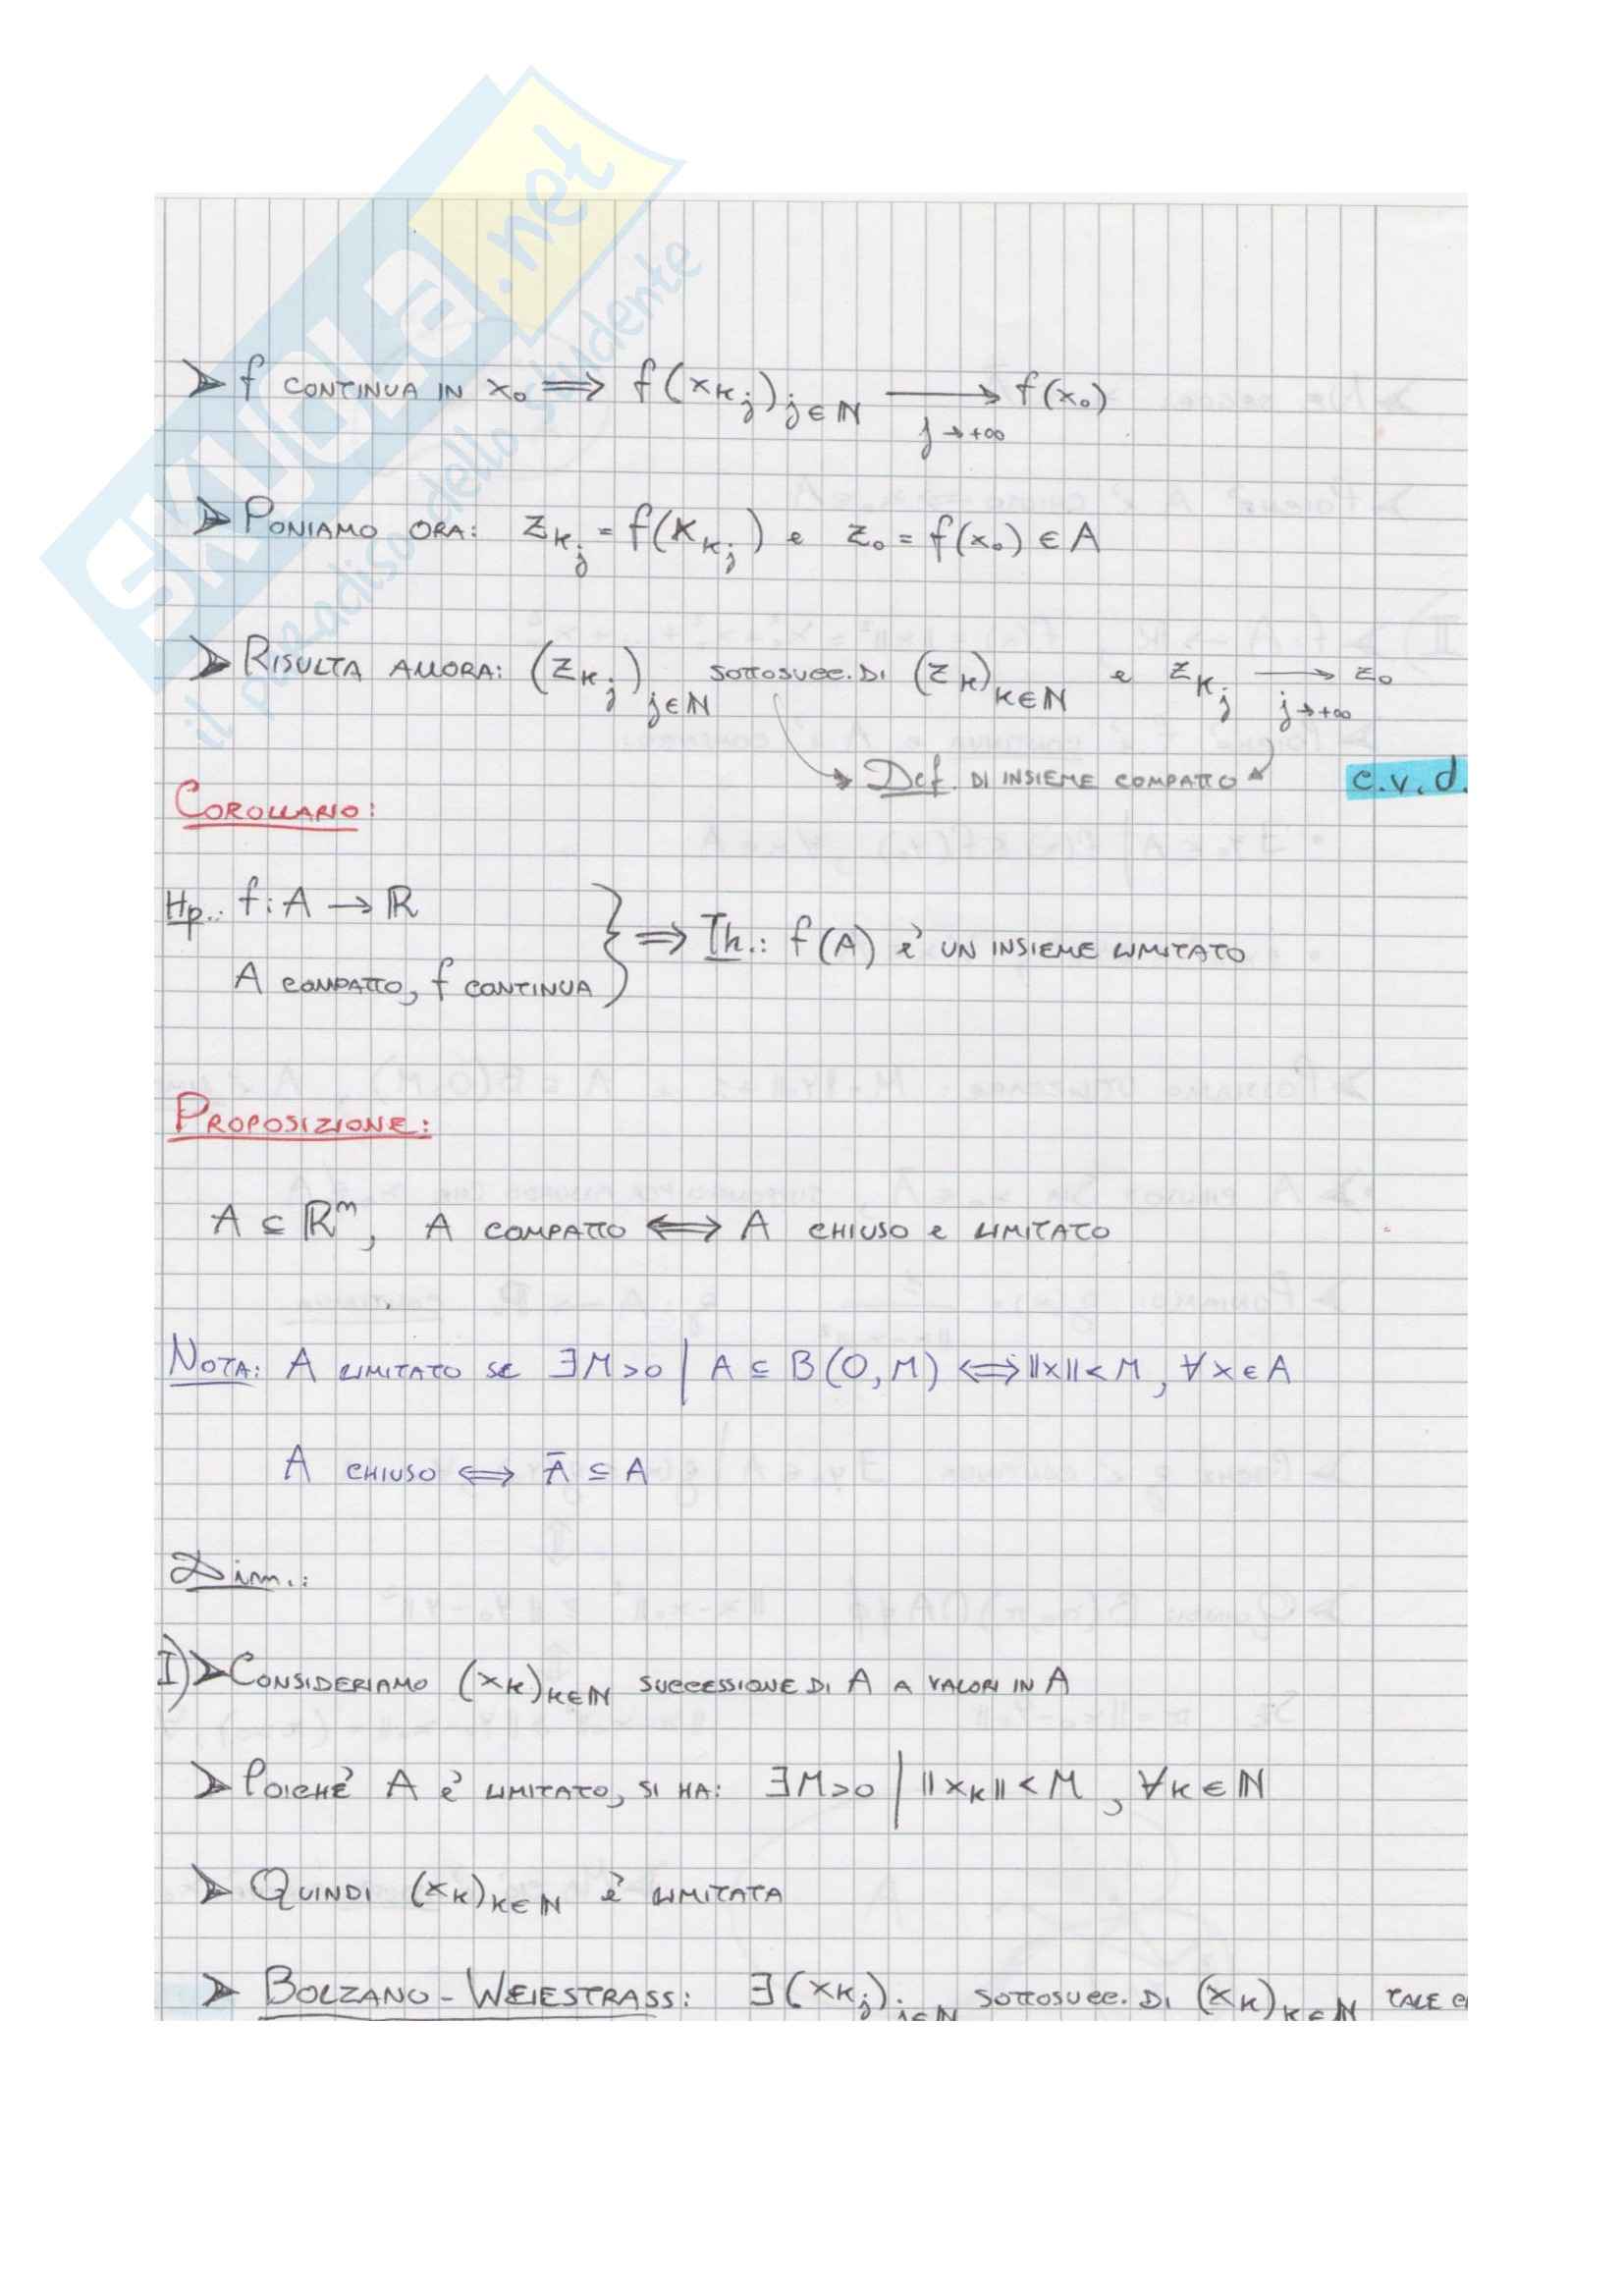 SKUOLA.net
il paradiso dello studente
➤ f CONTINUA IN x₀ ⟹ f(x_{k_j})_{j∈ℕ} ⟶_{j→+∞} f(x₀)
➤ PONIAMO ORA: z_{k_j} = f(x_{k_j}) e z₀ = f(x₀) ∈ A
➤ RISULTA ALLORA: (z_{k_j})_{j∈ℕ} SOTTOSUCC. DI (z_k)_{k∈ℕ} e z_{k_j} ⟶_{j→+∞} z₀
Def. DI INSIEME COMPATTO c.v.d.
COROLLARIO:
Hp.: f: A → ℝ
A COMPATTO, f CONTINUA } ⟹ Th.: f(A) è UN INSIEME LIMITATO
PROPOSIZIONE:
A ⊆ ℝᵐ, A COMPATTO ⟺ A CHIUSO e LIMITATO
NOTA: A LIMITATO se ∃M>0 | A ⊆ B(0,M) ⟺ ||x|| < M, ∀x∈A
A CHIUSO ⟺ Ā ⊆ A
Dim.:
I) ➤ CONSIDERIAMO (x_k)_{k∈ℕ} SUCCESSIONE DI A A VALORI IN A
➤ POICHÉ A è LIMITATO, SI HA: ∃M>0 | ||x_k|| < M, ∀k∈ℕ
➤ QUINDI (x_k)_{k∈ℕ} è LIMITATA
➤ BOLZANO-WEIESTRASS: ∃(x_{k_j})_{j∈ℕ} SOTTOSUCC. DI (x_k)_{k∈ℕ} TALE